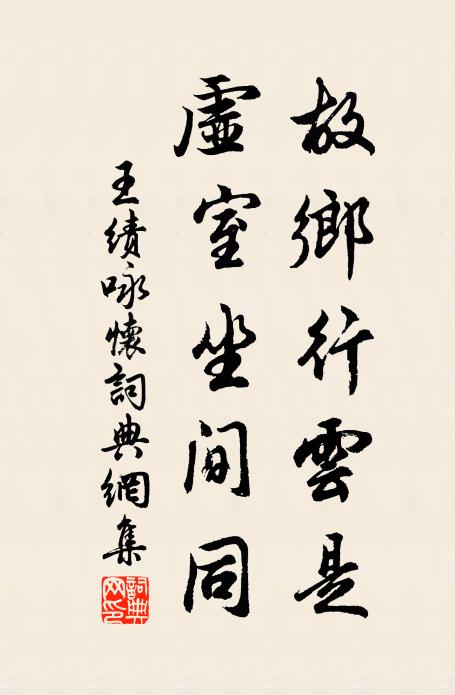 故鄉行雲是
虛室坐間同
王績咏懷詞典網集
詞典網印